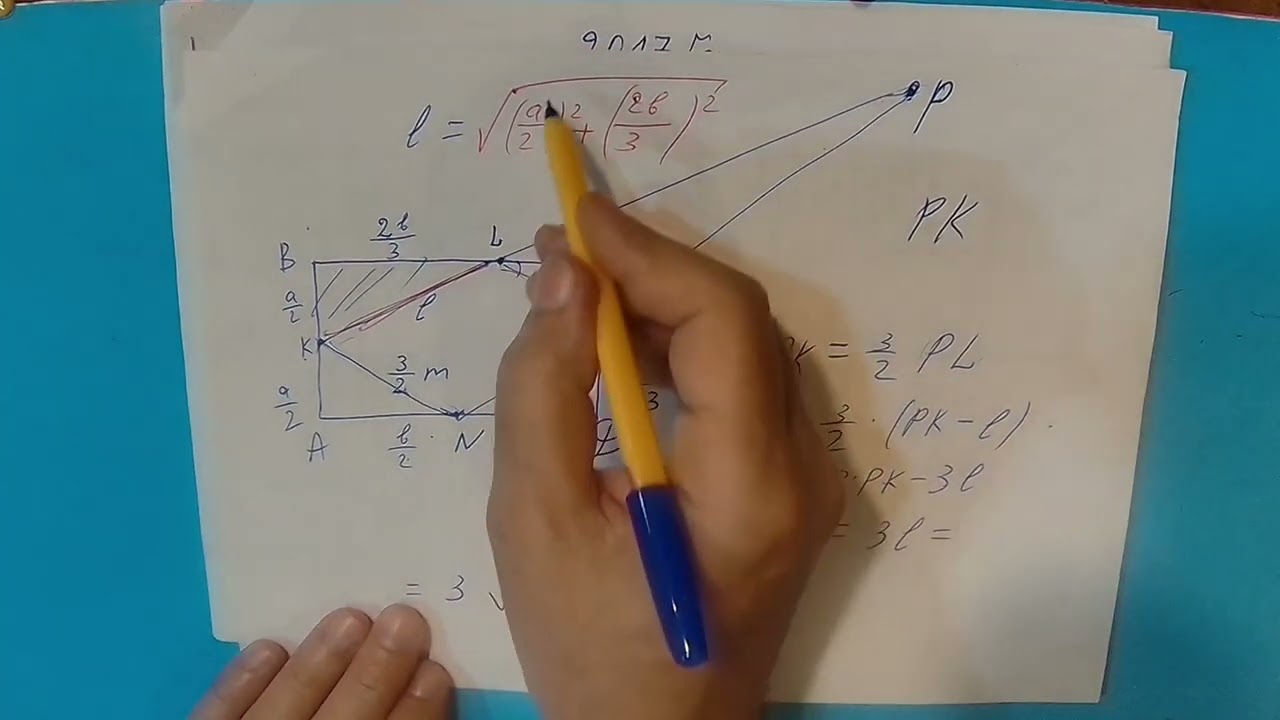 l = √((a/2)² + (2b/3)²)
P
PK
2b/3
B
L
a/2
l
K
3/2 m
a/2
A
b/2
N
K = 3/2 PL
3/2 · (PK - l)
· PK - 3l
= 3l =
= 3 √
3